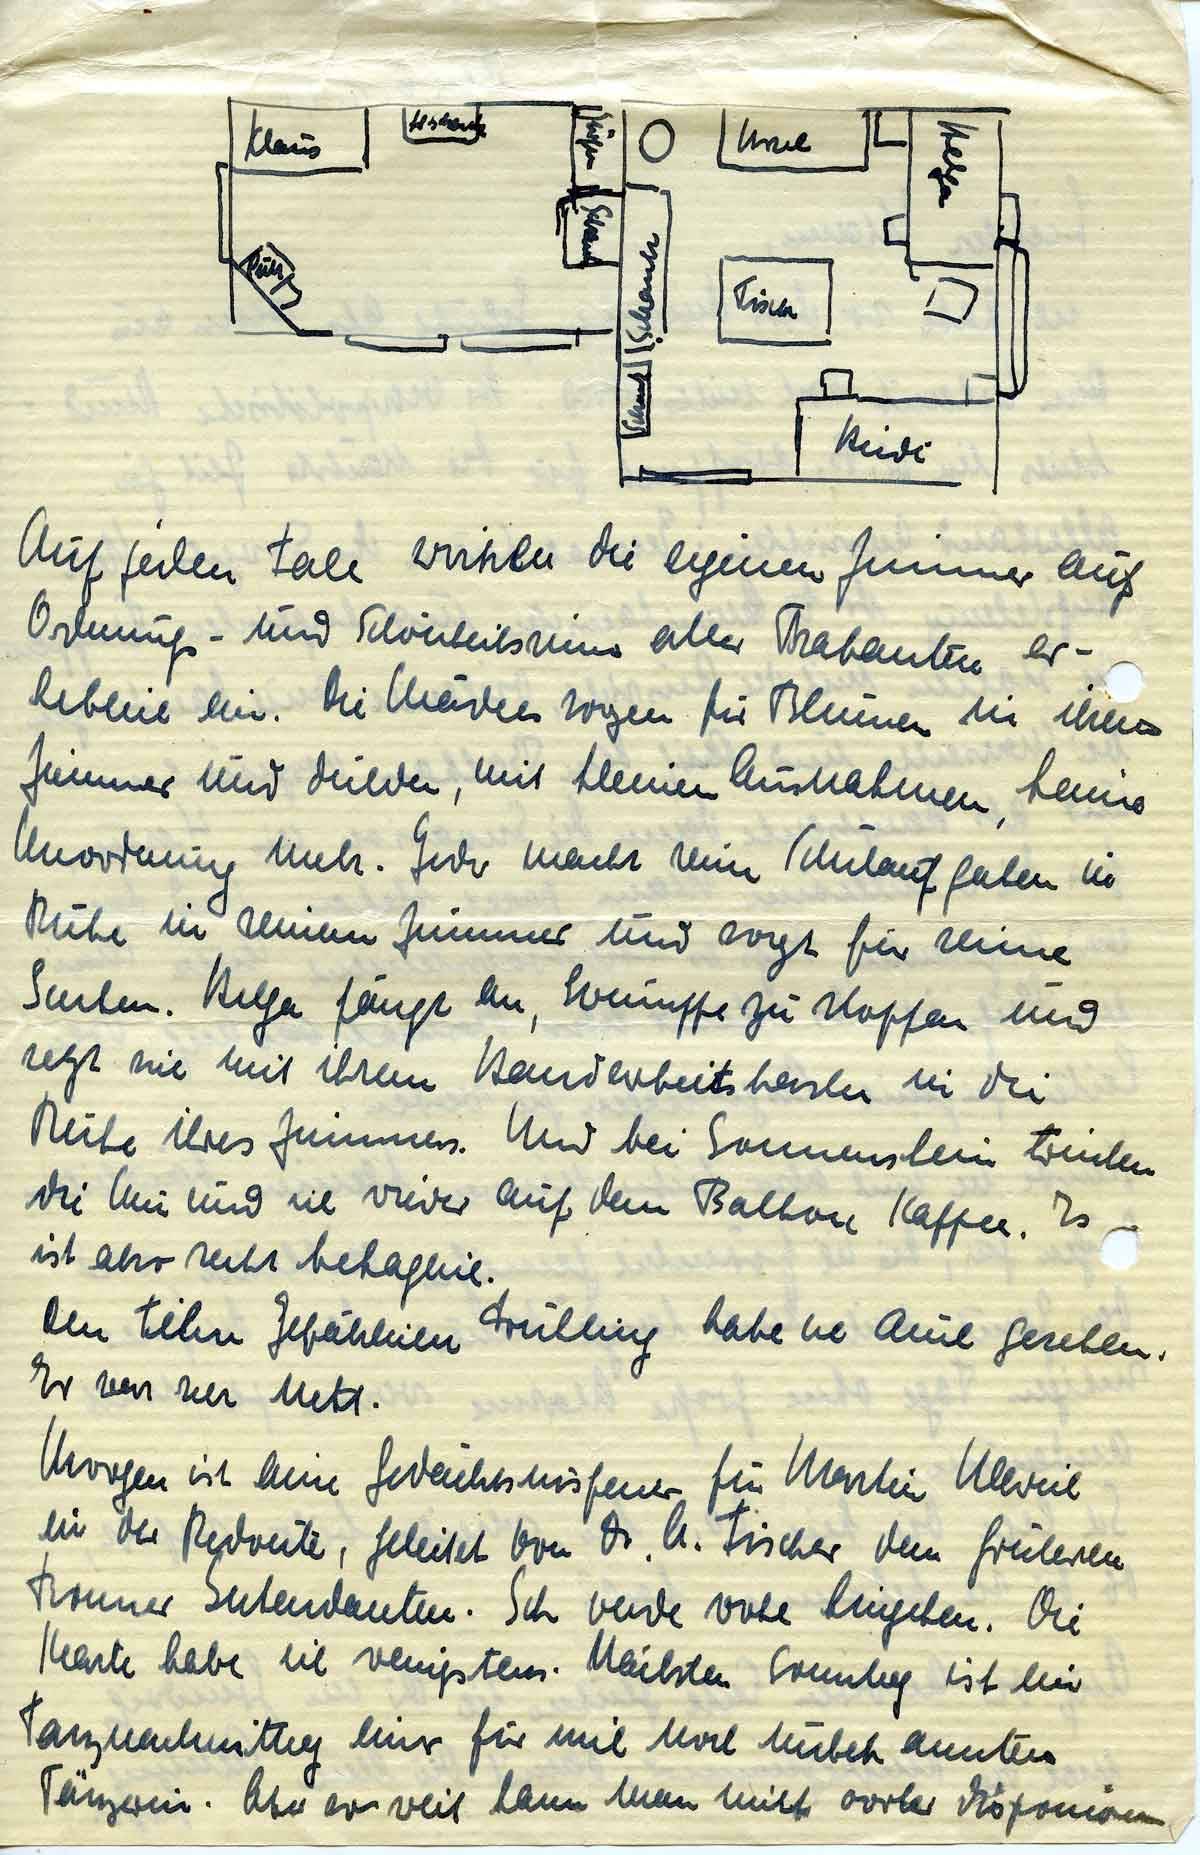 Klaus
Ursel
Helga
Schrank
Schrank
Schrank
Tisch
Pult
Heidi
Auf jeden Fall wirken die eigenen Zimmer auf
Ordnungs- und Schönheitssinn aller Trabanten er-
heblich ein. Die Mädels sorgen für Blumen in ihrem
Zimmer und dulden, mit kleinen Ausnahmen, keine
Unordnung mehr. Jeder macht sein Schulaufgaben in
Ruhe in seinem Zimmer und sorgt für seine
Sachen. Helga fängt an, Strümpfe zu stopfen und
setzt sie mit ihrem Handarbeitskasten in die
Ruhe ihres Zimmers. Und bei Sonnenschein trinken
die Mu und ich wieder auf dem Balkon Kaffee. Es
ist also recht behaglich.
Den Film Gefährlicher Frühling habe ich auch gesehen.
Er war sehr nett.
Morgen ist eine Gedächtnisfeier für Martin
in der Redoute, geleitet von Dr. A. Fischer dem früheren
Bonner Intendanten. Ich werde wohl hingehen. Die
Karte habe ich wenigstens. Nächsten Sonntag ist ein
Tanznachmittag einer für mich noch unbekannten
Tänzerin. Aber so weit kann man nicht vorher disponieren